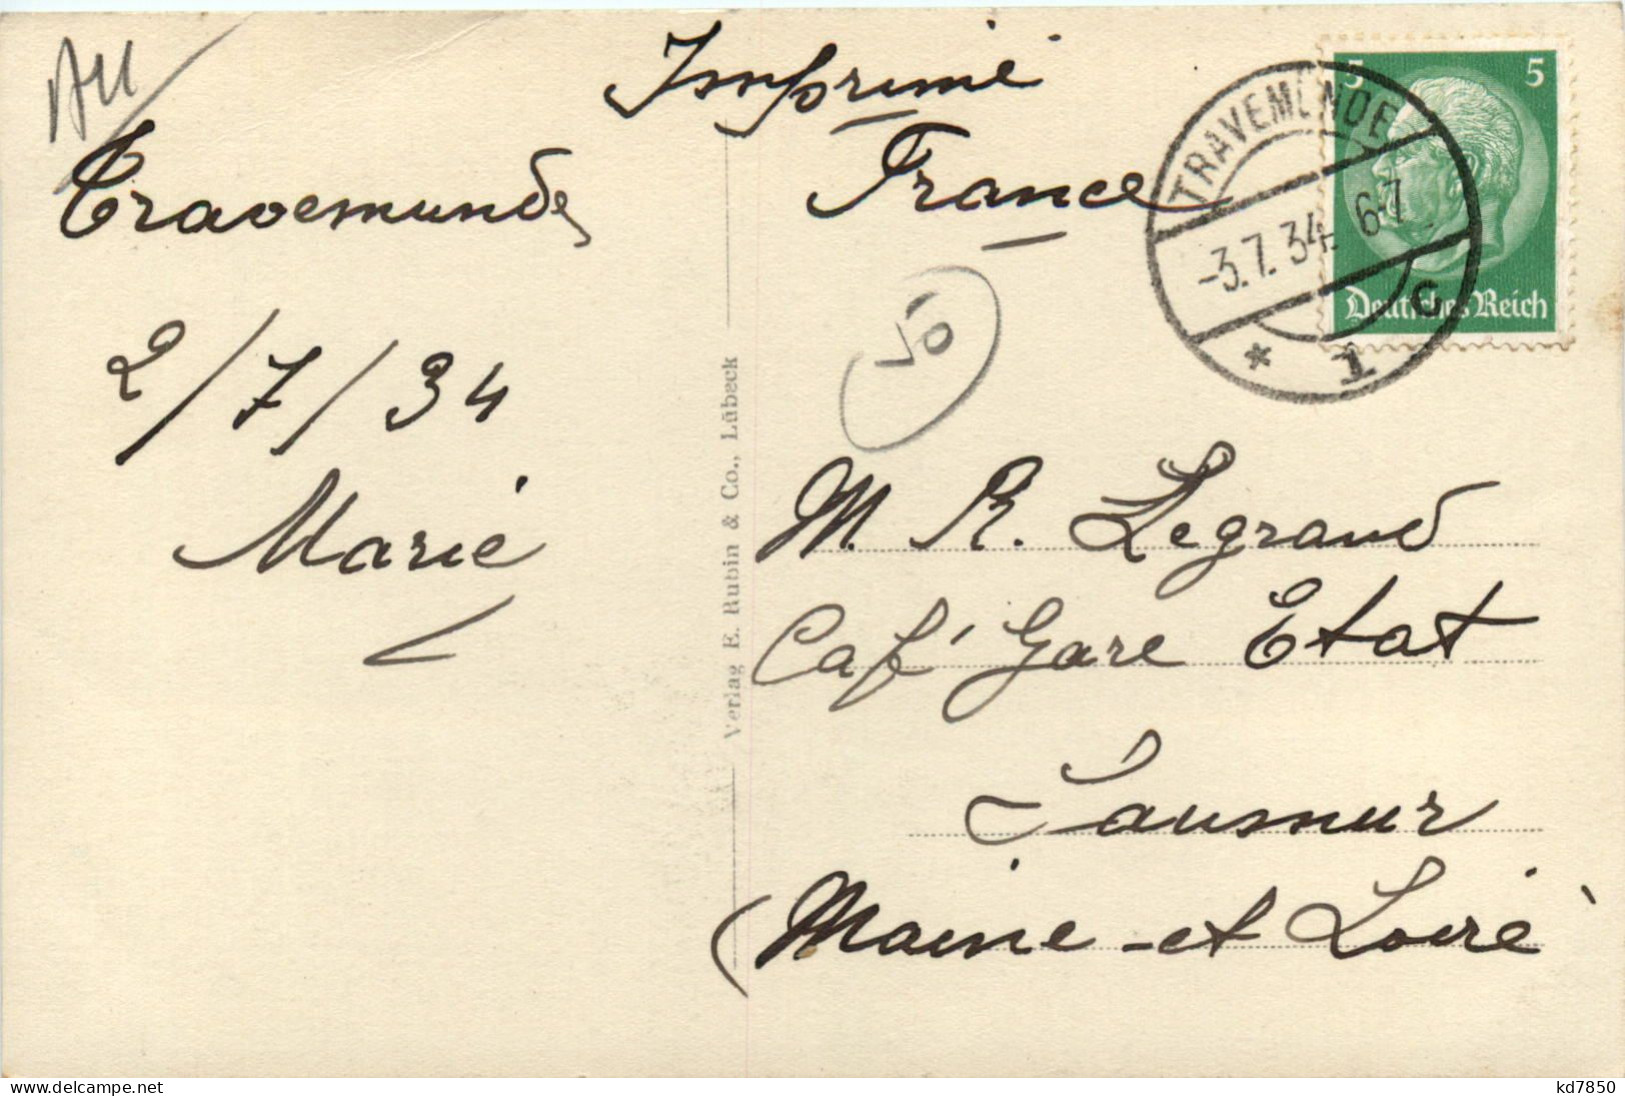 Imprimé
France
Travemunde
2/7/34
Marie
5 5
Deutsches Reich
TRAVEMÜNDE
-3.7.34. 6-7
* 1 c
Verlag E. Rubin & Co., Lübeck
M. R. Legrand
Caf' Gare Etat
Saumur
(Maine-et Loire
www.delcampe.net
kd7850